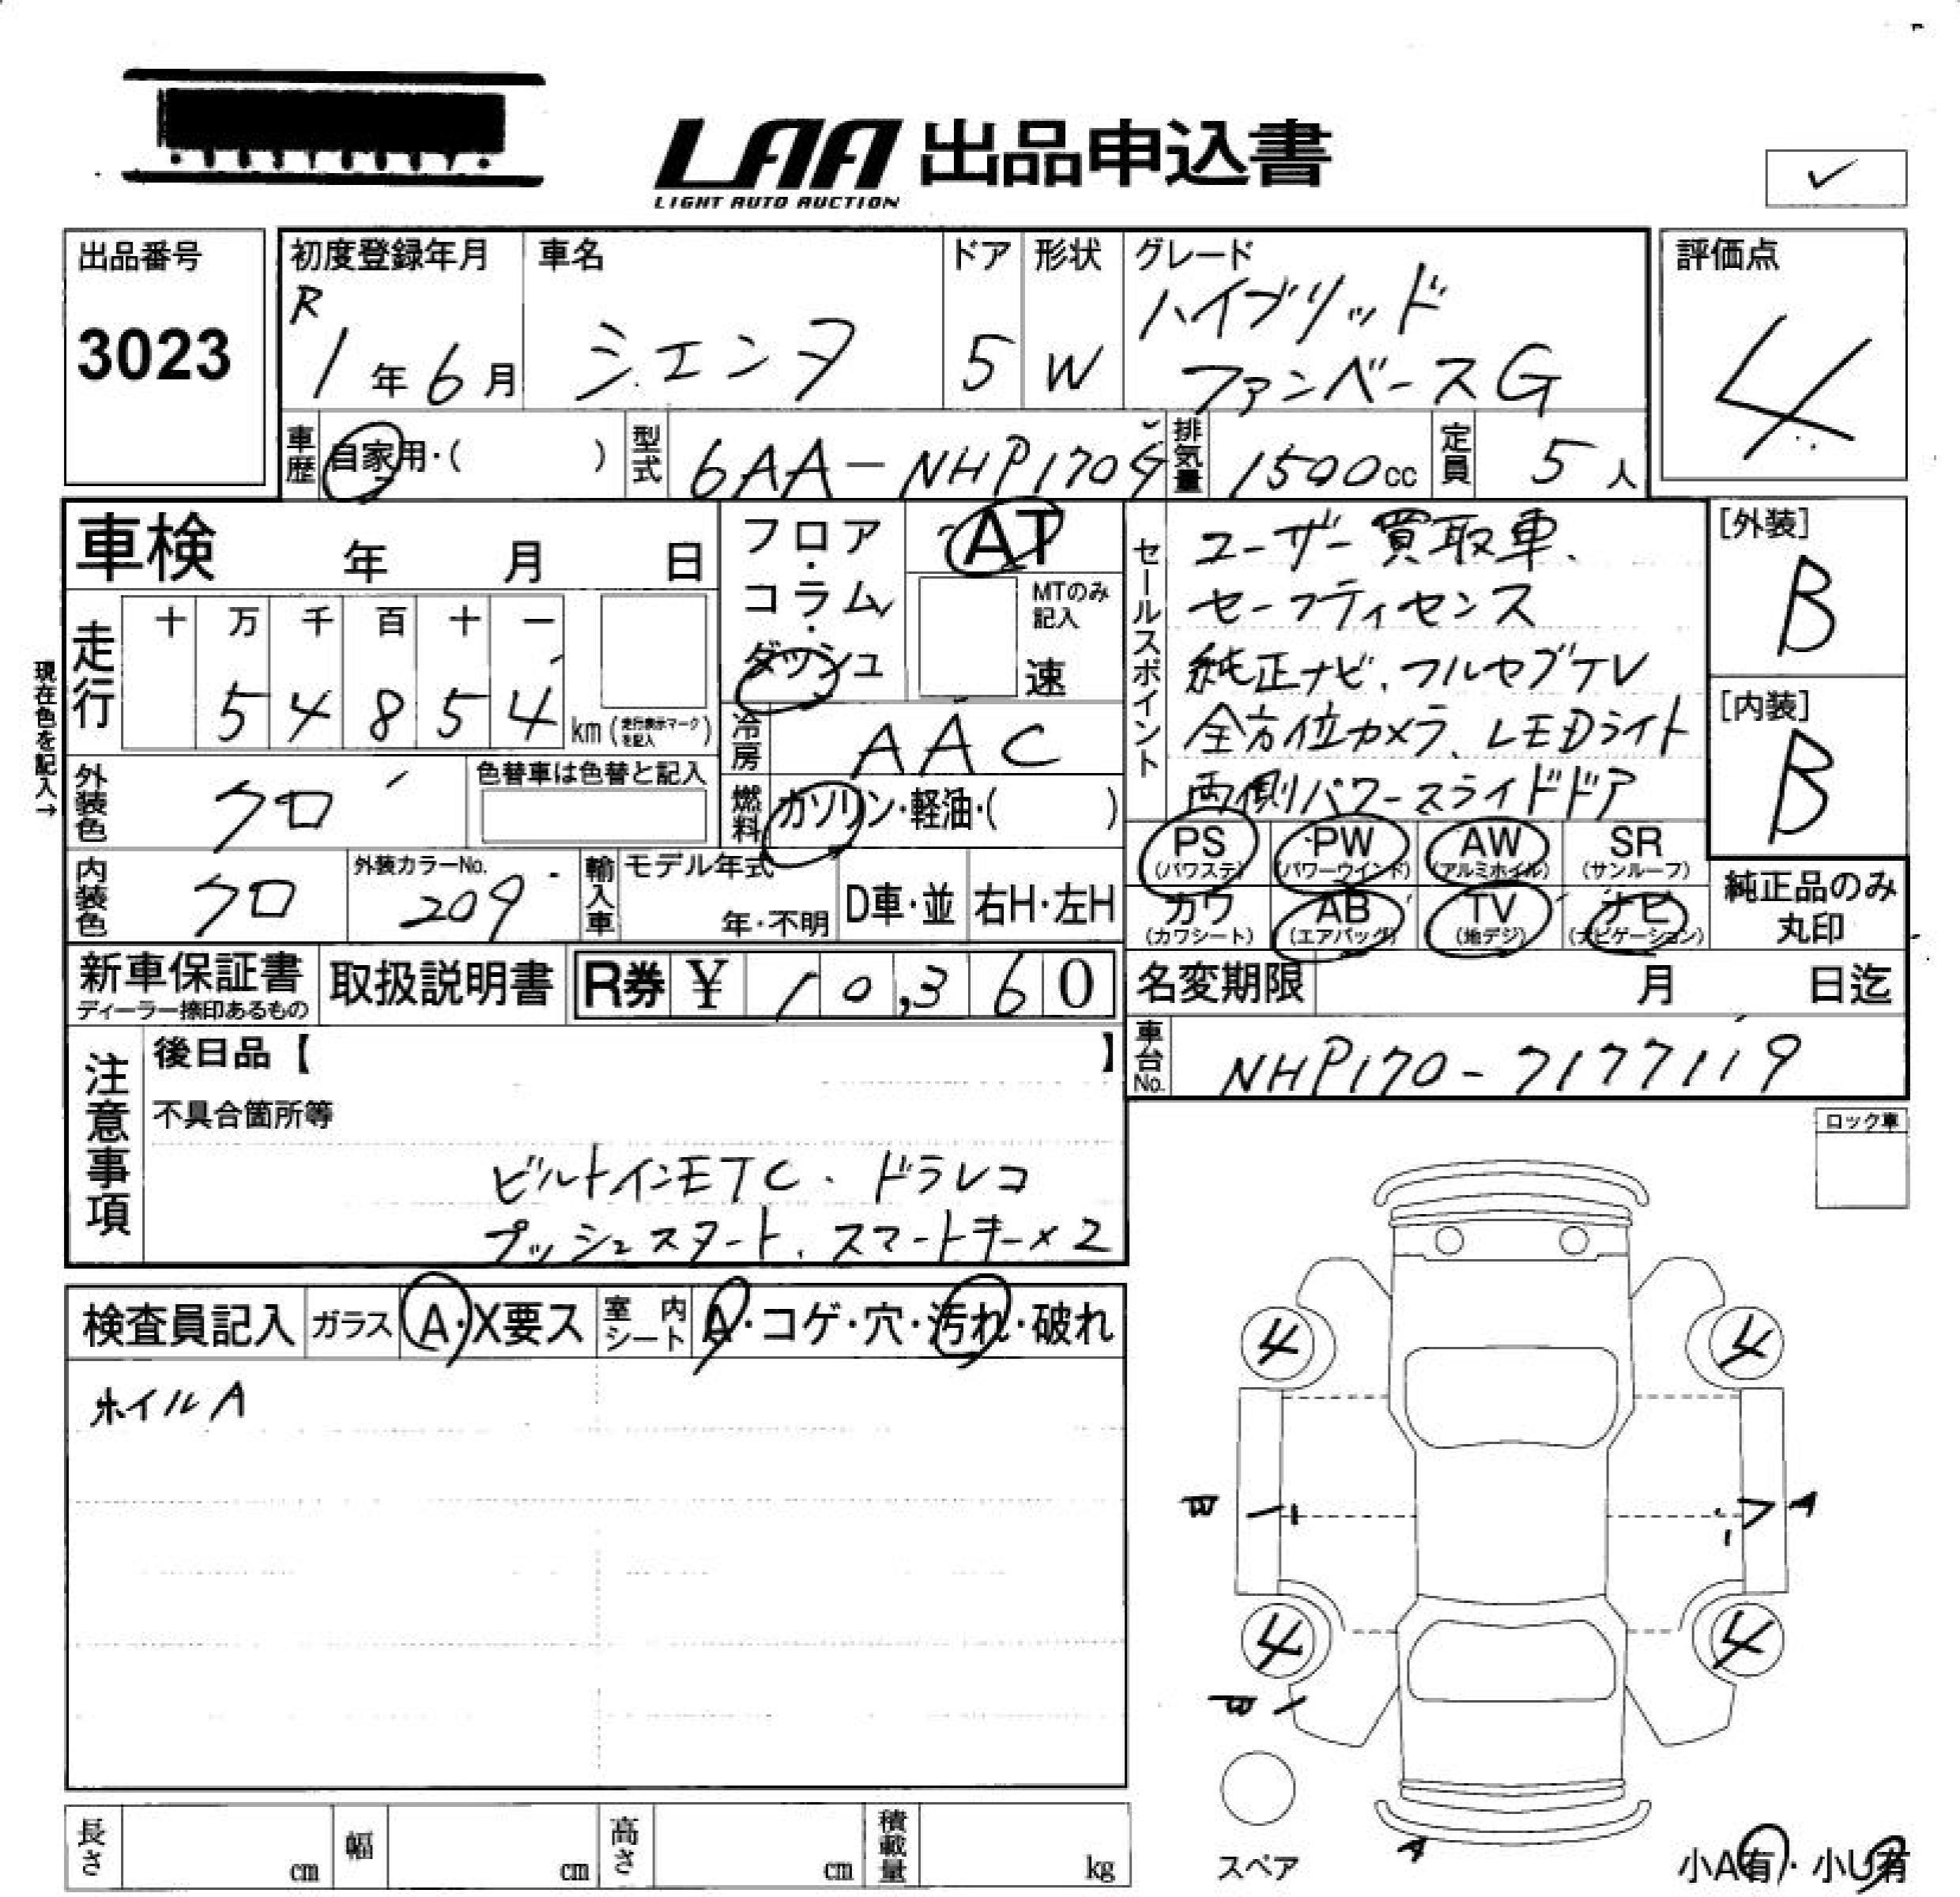 LAA 出品申込書
LIGHT AUTO AUCTION
✓
出品番号 初度登録年月 車名 ドア 形状 グレード 評価点
3023 R1年6月 シエンタ 5 W ハイブリッド
ファンベースG 4
車歴 自家用・( ) 型式 6AA-NHP170G 排気量 1500cc 定員 5人
車検 年 月 日
フロア・コラム・ダッシュ AT
MTのみ記入
速
セールスポイント
ユーザー買取車、
セーフティセンス
純正ナビ、フルセグTV
全方位カメラ、LEDライト
両側パワースライドドア
[外装]
B
[内装]
B
現在色を記入→
走行 十 万 千 百 十 一
5 4 8 5 4 km (走行表示マークを記入)
冷房 AAC
外装色 クロ 色替車は色替と記入
燃料 ガソリン・軽油・( )
PS (パワステ) PW (パワーウインド) AW (アルミホイル) SR (サンルーフ)
カワ (カワシート) AB (エアバッグ) TV (地デジ) ナビ (ナビゲーション)
純正品のみ
丸印
内装色 クロ 外装カラーNo. 209 輸入車 モデル年式 年・不明 D車・並 右H・左H
新車保証書 取扱説明書 R券 ¥ 10,360
ディーラー捺印あるもの
名変期限 月 日迄
車台No. NHP170-7177119
注意事項
後日品【 】
不具合箇所等
ビルトインETC、ドラレコ
プッシュスタート、スマートキー×2
ロック車
検査員記入 ガラス A・X要ス 室内シート A・コゲ・穴・汚れ・破れ
ホイルA
4 4
4 4
A
A
スペア
小A有・小U有
長さ cm 幅 cm 高さ cm 積載量 kg